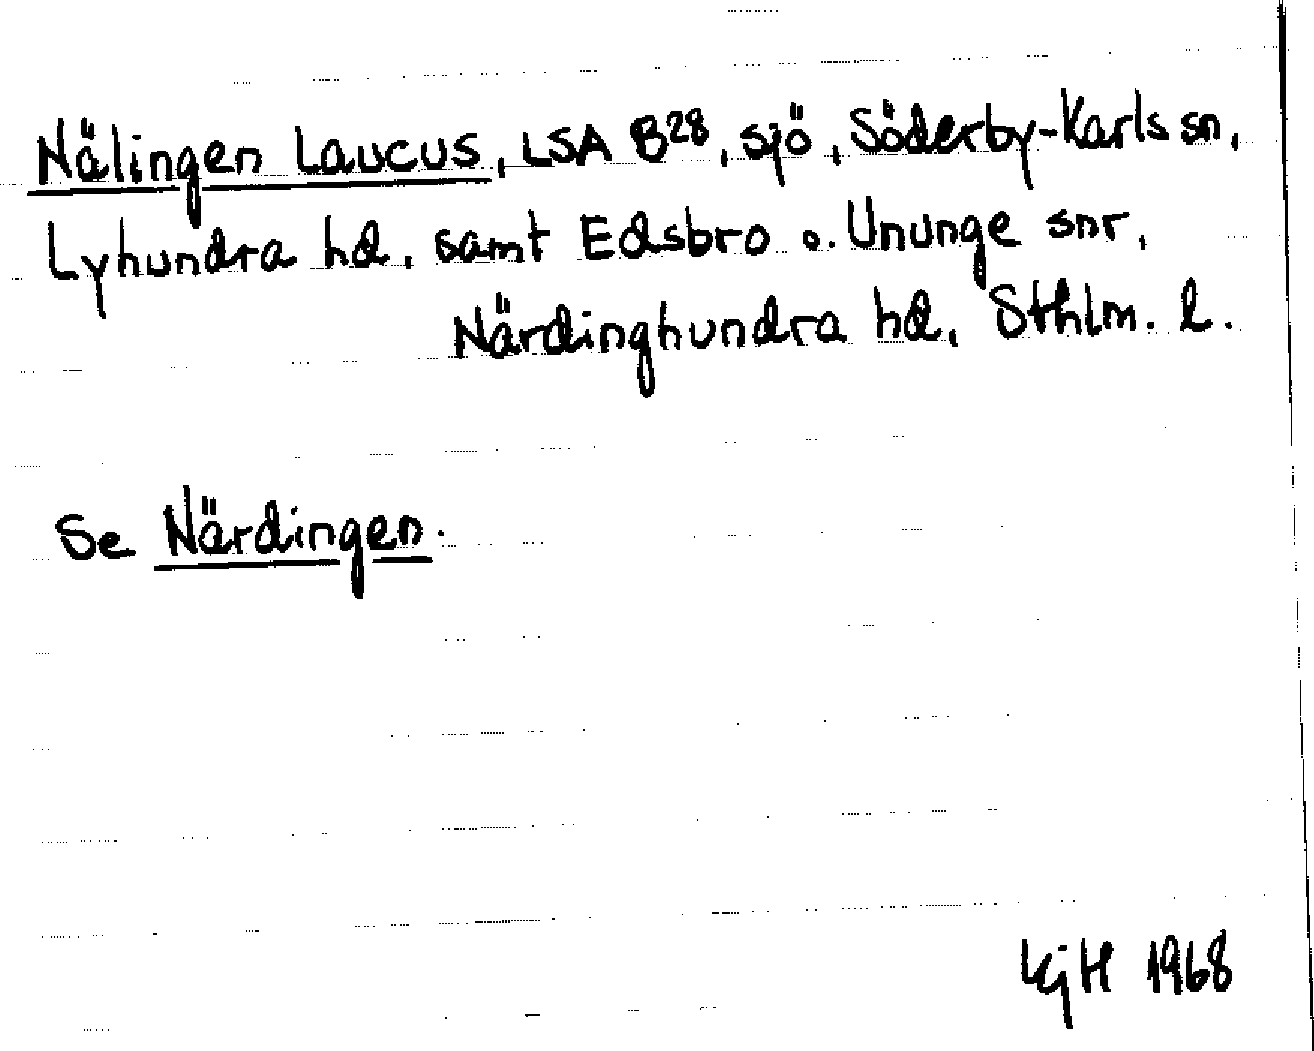 Nälingen Laucus, LSA B28, sjö, Söderby-Karls sn,
Lyhundra hd, samt Edsbro o. Ununge snr,
Närdinghundra hd, Sthlm. l.
Se Närdingen.
KjH 1968